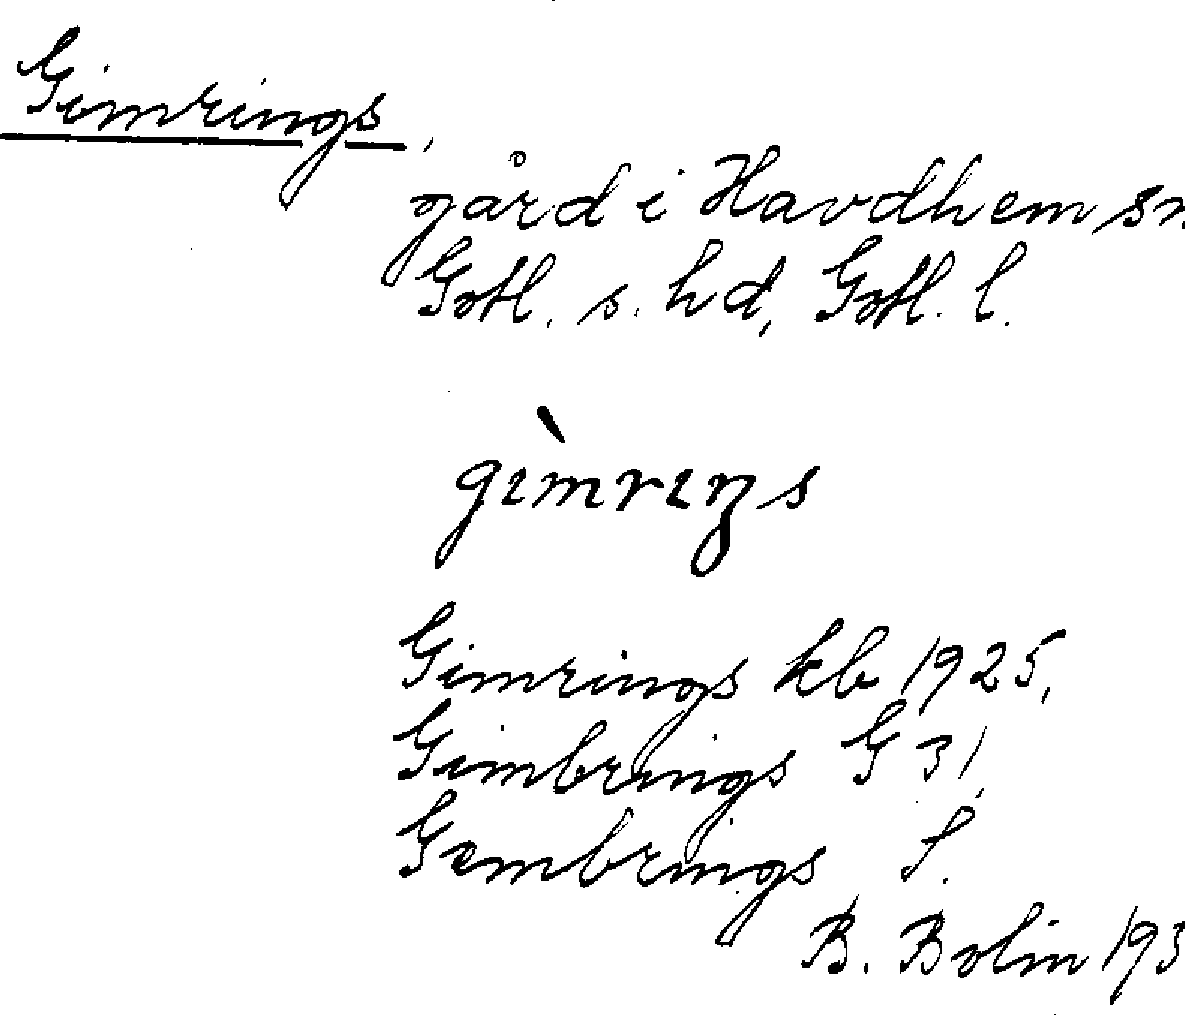 Gimrings,
gård i Havdhem sn
Gotl. s. hd, Gotl. l.
gìmrıŋs
Gimrings kb 1925,
Gimbrings G 31,
Gembrings S.
B. Bolin 193